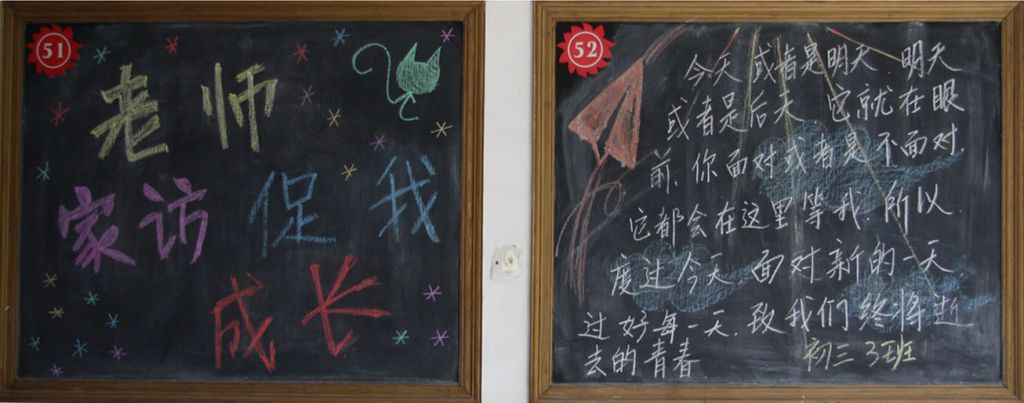 51
老师
家访促我
成长
52
今天或者是明天.明天
或者是后天 它就在眼
前.你面对或者是不面对.
它都会在这里等我.所以
度过今天.面对新的一天.
过好每一天.致我们终将逝
去的青春.
初三3班